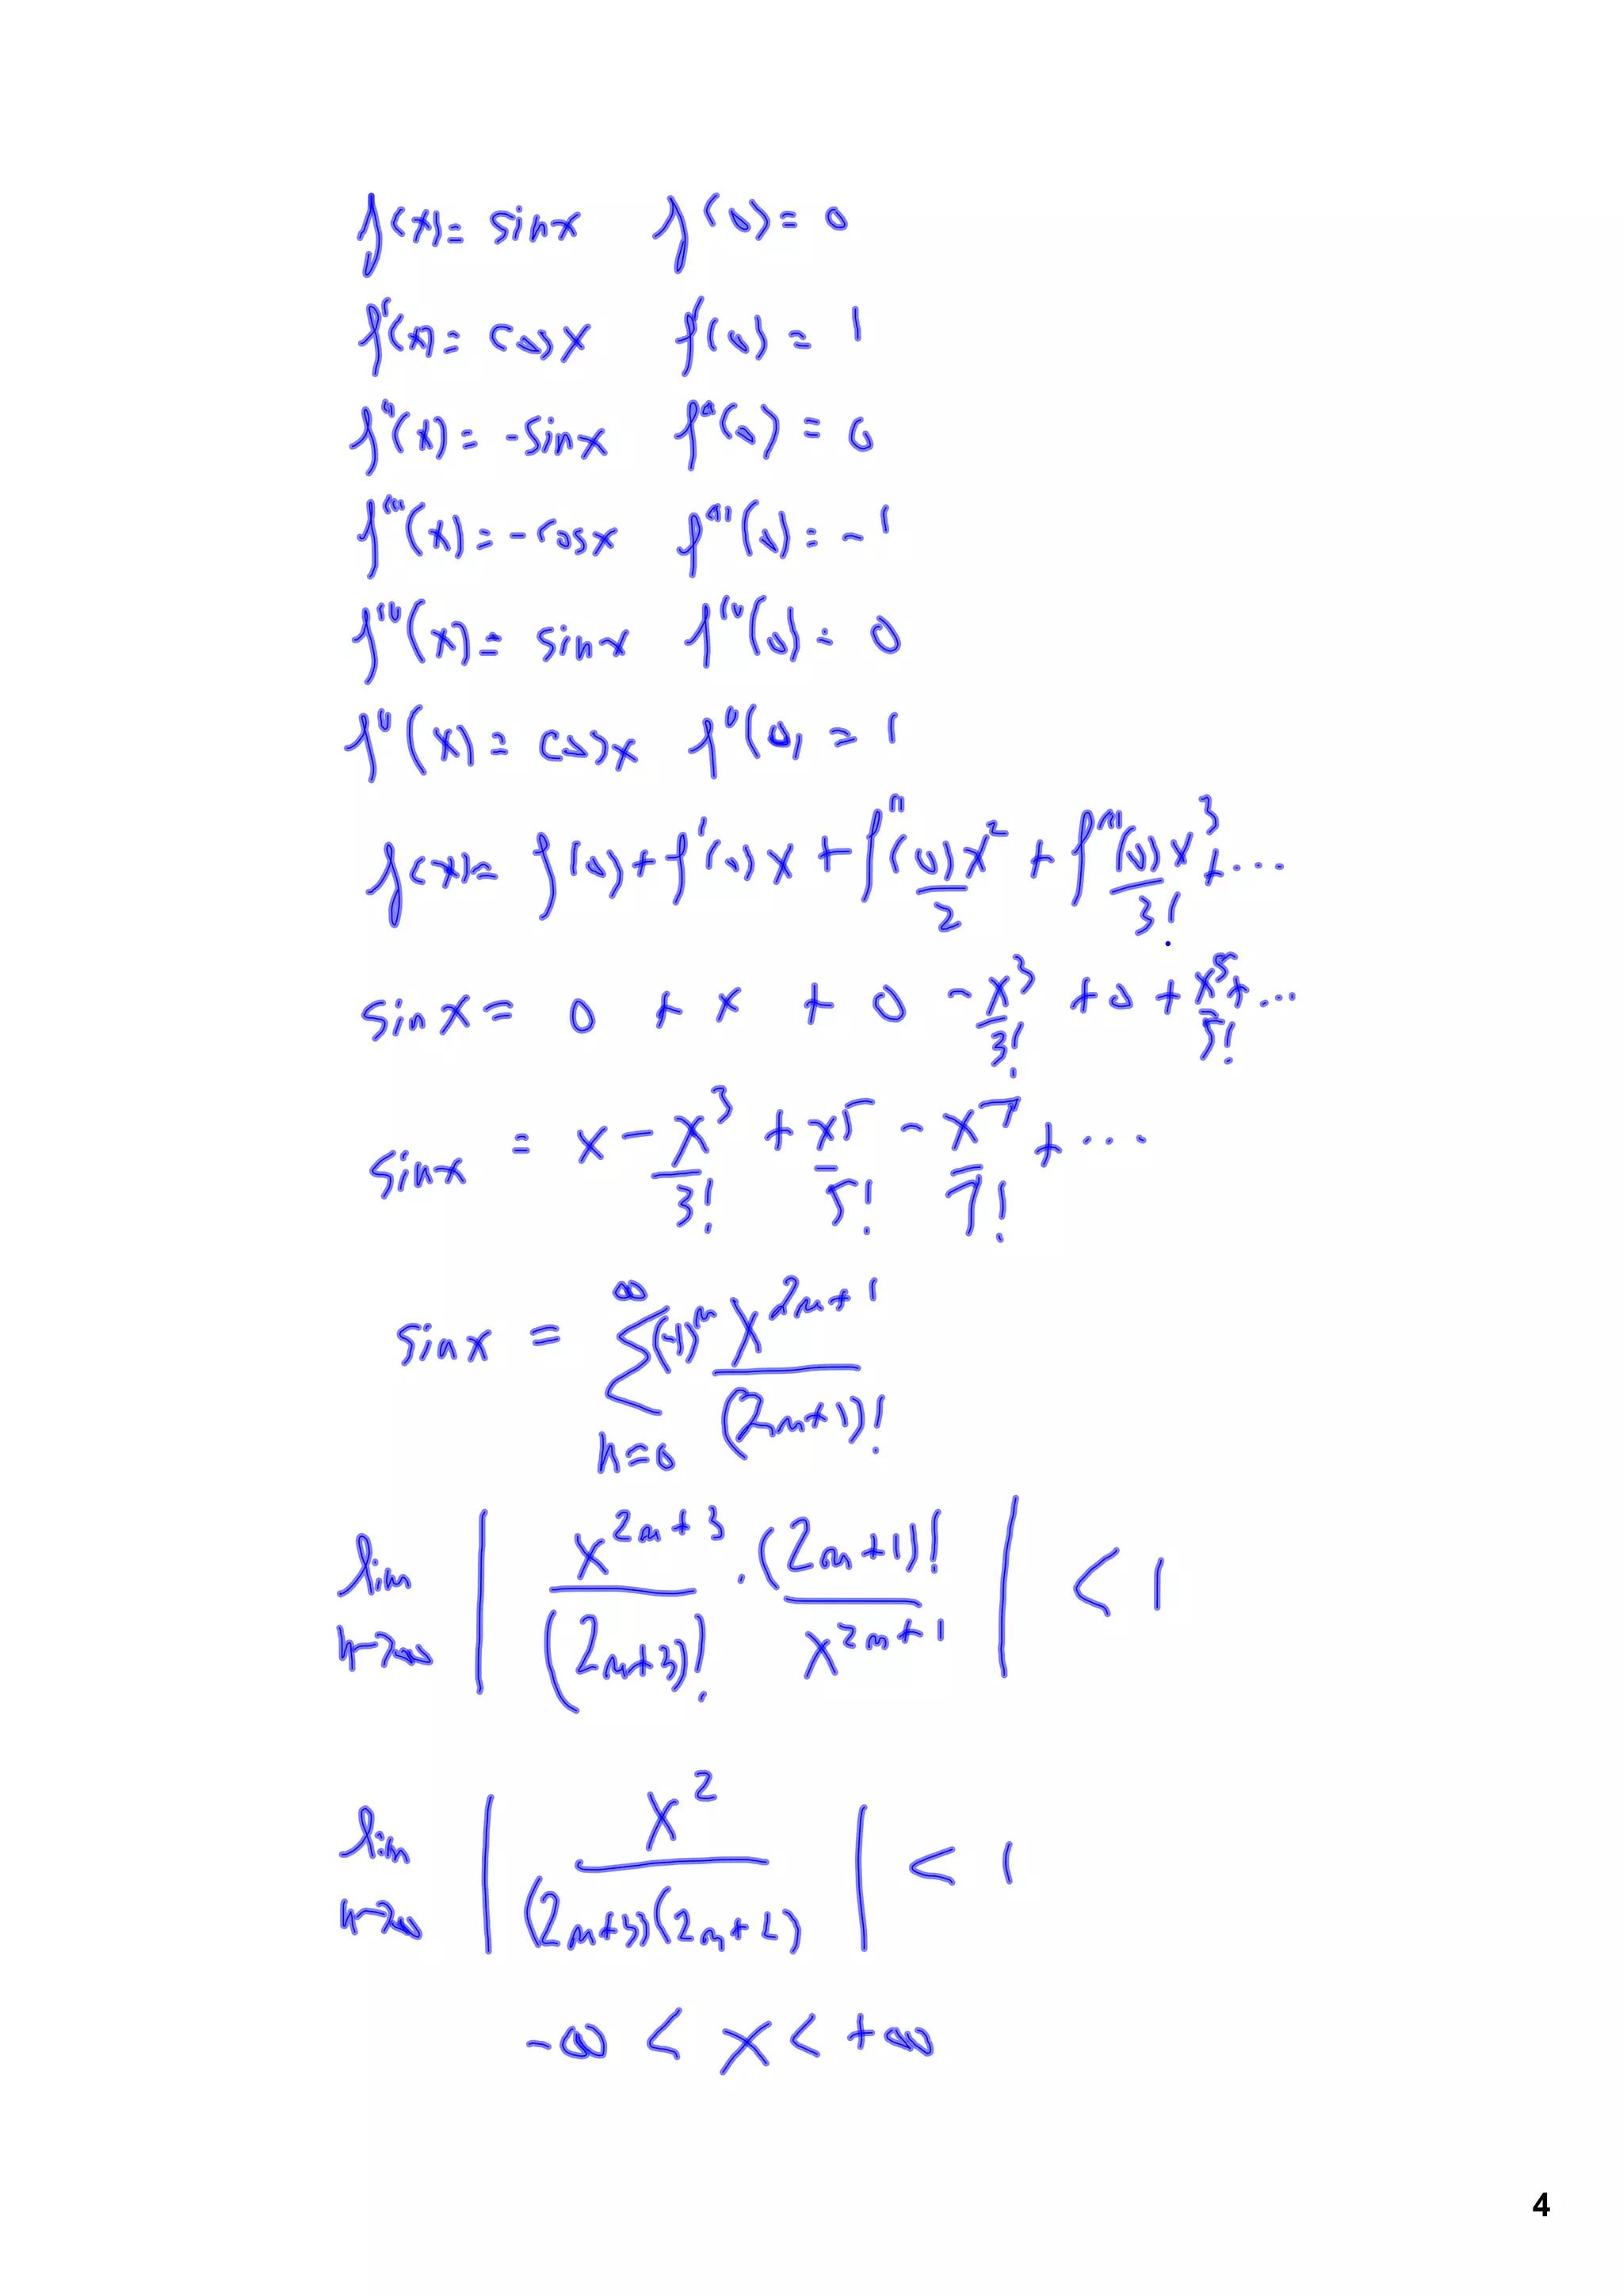 f(x) = sin x f(0) = 0
f'(x) = cos x f'(0) = 1
f''(x) = -sin x f''(0) = 0
f'''(x) = -cos x f'''(0) = -1
f^{iv}(x) = sin x f^{iv}(0) = 0
f^{v}(x) = cos x f^{v}(0) = 1
f(x) = f(0) + f'(0)x + f''(0)x^2/2 + f'''(0)x^3/3! + ...
sin x = 0 + x + 0 - x^3/3! + 0 + x^5/5! + ...
sin x = x - x^3/3! + x^5/5! - x^7/7! + ...
sin x = ∑_{n=0}^{∞} (-1)^n x^{2n+1}/(2n+1)!
lim_{n→∞} | x^{2n+3}/(2n+3)! · (2n+1)!/x^{2n+1} | < 1
lim_{n→∞} | x^2/((2n+3)(2n+2)) | < 1
-∞ < x < +∞
4